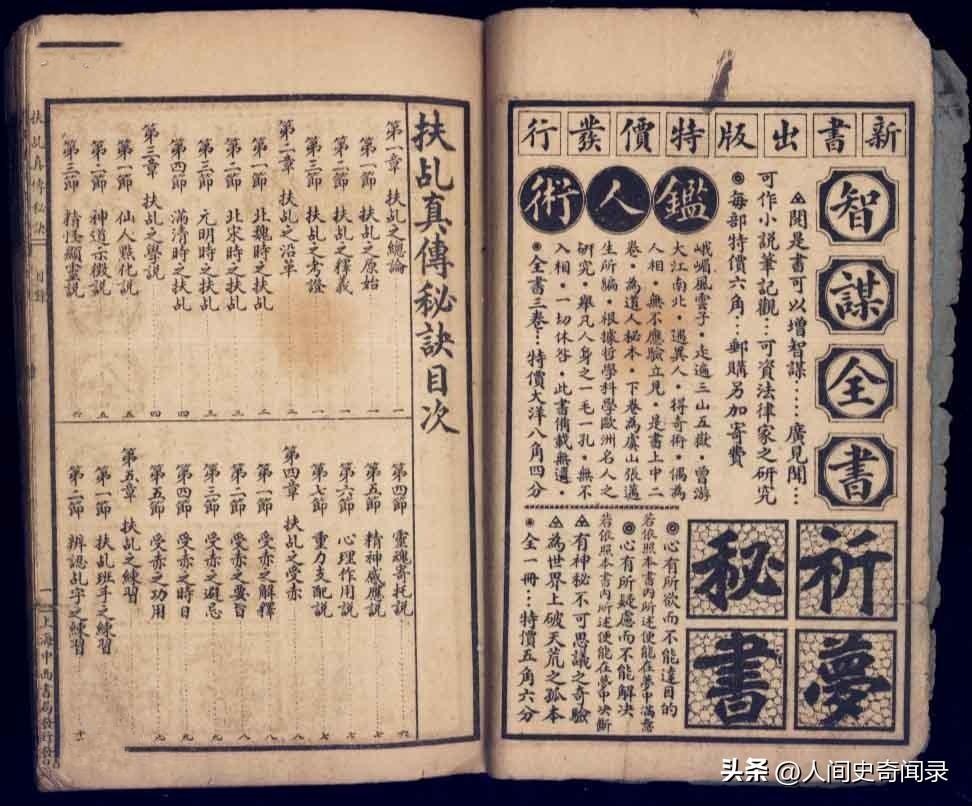 新書出版特價發行
智謀全書
▲閱是書可以增智謀……廣見聞…
可作小說筆記觀…可資法律家之研究
◉每部特價六角…郵購另加寄費
鑑人術
峨嵋風雲子．走遍三山五嶽．曾游
大江南北．遇異人．得奇術．偶為
人相．無不應驗立見．是書上中二
卷．為道人秘本．下卷為虞山張邁
生所編．根據哲學科學歐洲名人之
研究．舉凡人身之一毛一孔．無不
入相．一切休咎．此書備載無遺．
◉全書三卷…特價大洋八角四分
祈夢秘書
◎心有所欲而不能達目的
若依照本書內所述便能在夢中滿意
◎心有所疑慮而不能解決
若依照本書內所述便能在夢中決斷
▲有神秘不可思議之奇驗
▲為世界上破天荒之孤本
◉全一冊…特價五角六分
扶乩真傳秘訣目次
第一章 扶乩之總論
第一節 扶乩之原始
第二節 扶乩之釋義
第三節 扶乩之考證
第二章 扶乩之沿革
第一節 北魏時之扶乩
第二節 北宋時之扶乩
第三節 元明時之扶乩
第四節 滿清時之扶乩
第三章 扶乩之學說
第一節 仙人點化說
第二節 神道示徵說
第三節 精怪顯靈說
第四節 靈魂寄托說
第五節 精神感應說
第六節 心理作用說
第七節 重力支配說
第四章 扶乩之受赤
第一節 受赤之解釋
第二節 受赤之要旨
第三節 受赤之避忌
第四節 受赤之時日
第五節 受赤之功用
第五章 扶乩之練習
第一節 扶乩班手之練習
第二節 辨認乩字之練習
扶乩真傳秘訣 目錄
一 上海中西書局發行
头条 @人间史奇闻录